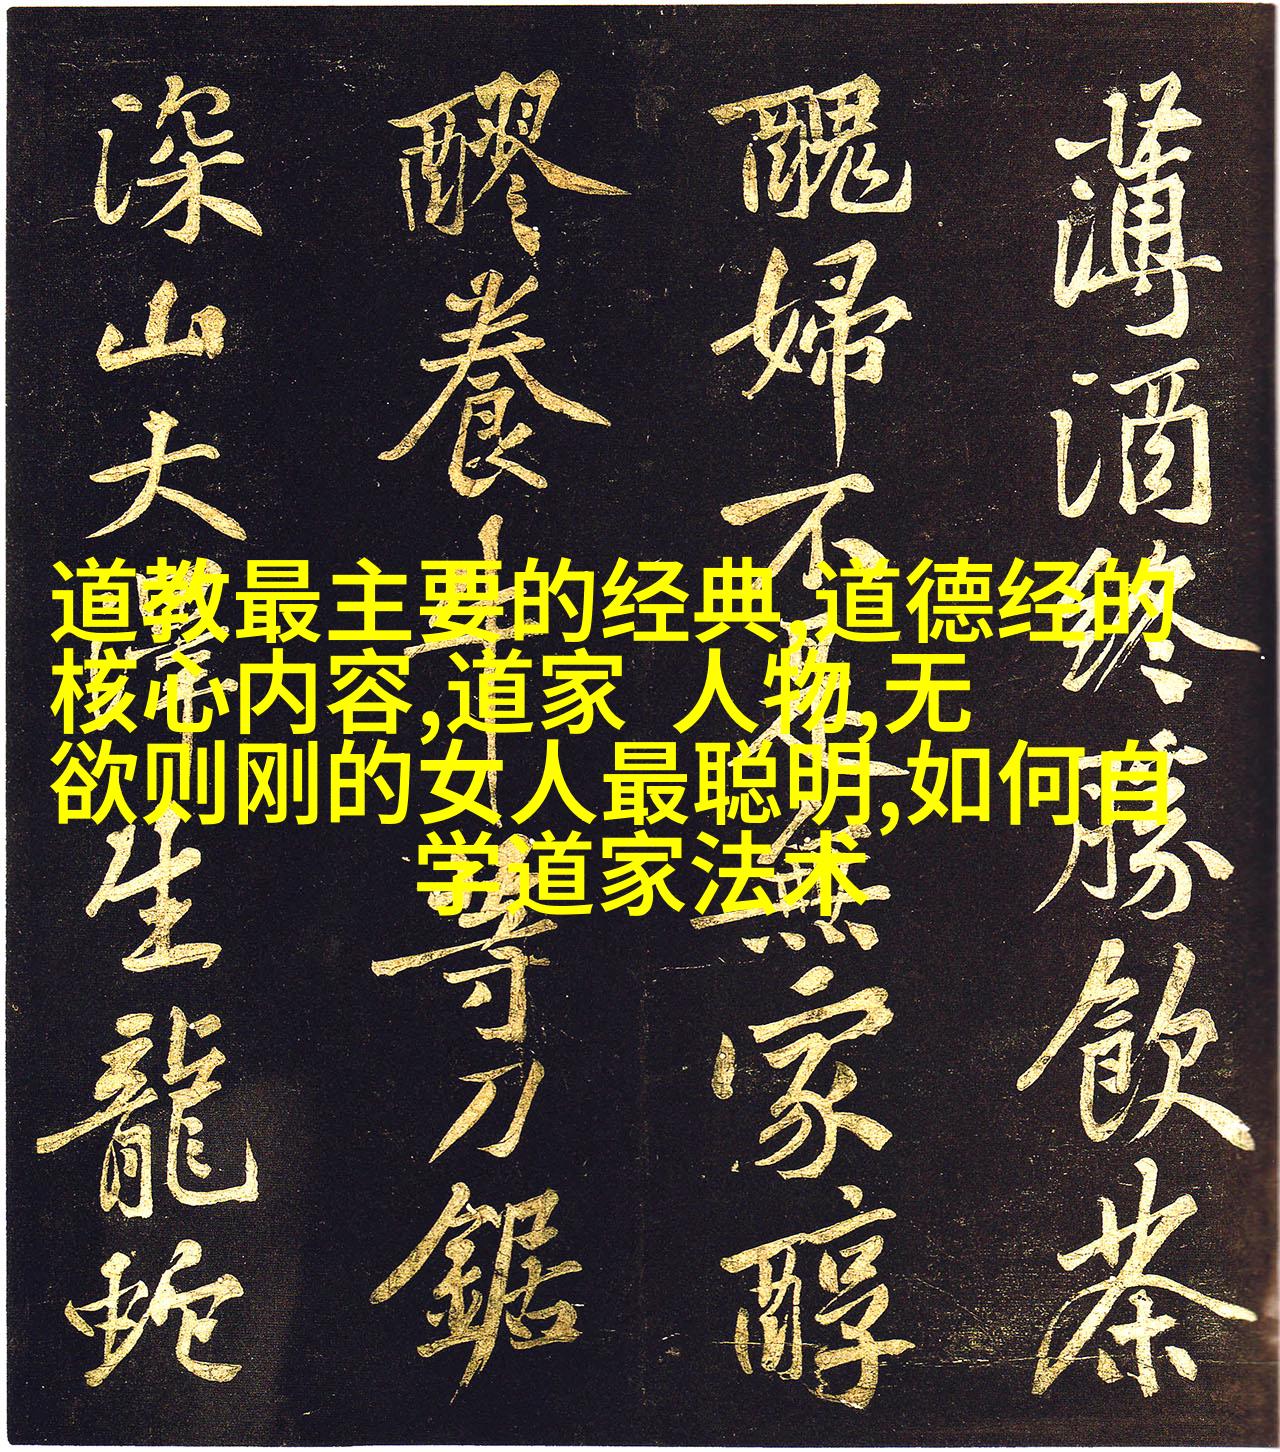 道教最主要的经典,道德经的
核心内容,道家 人物,无
欲则刚的女人最聪明,如何自
学道家法术
薄酒終勝飲茶
醜婦不是無家醇
醪養牛等刀鋸
深山大澤生龍蛇